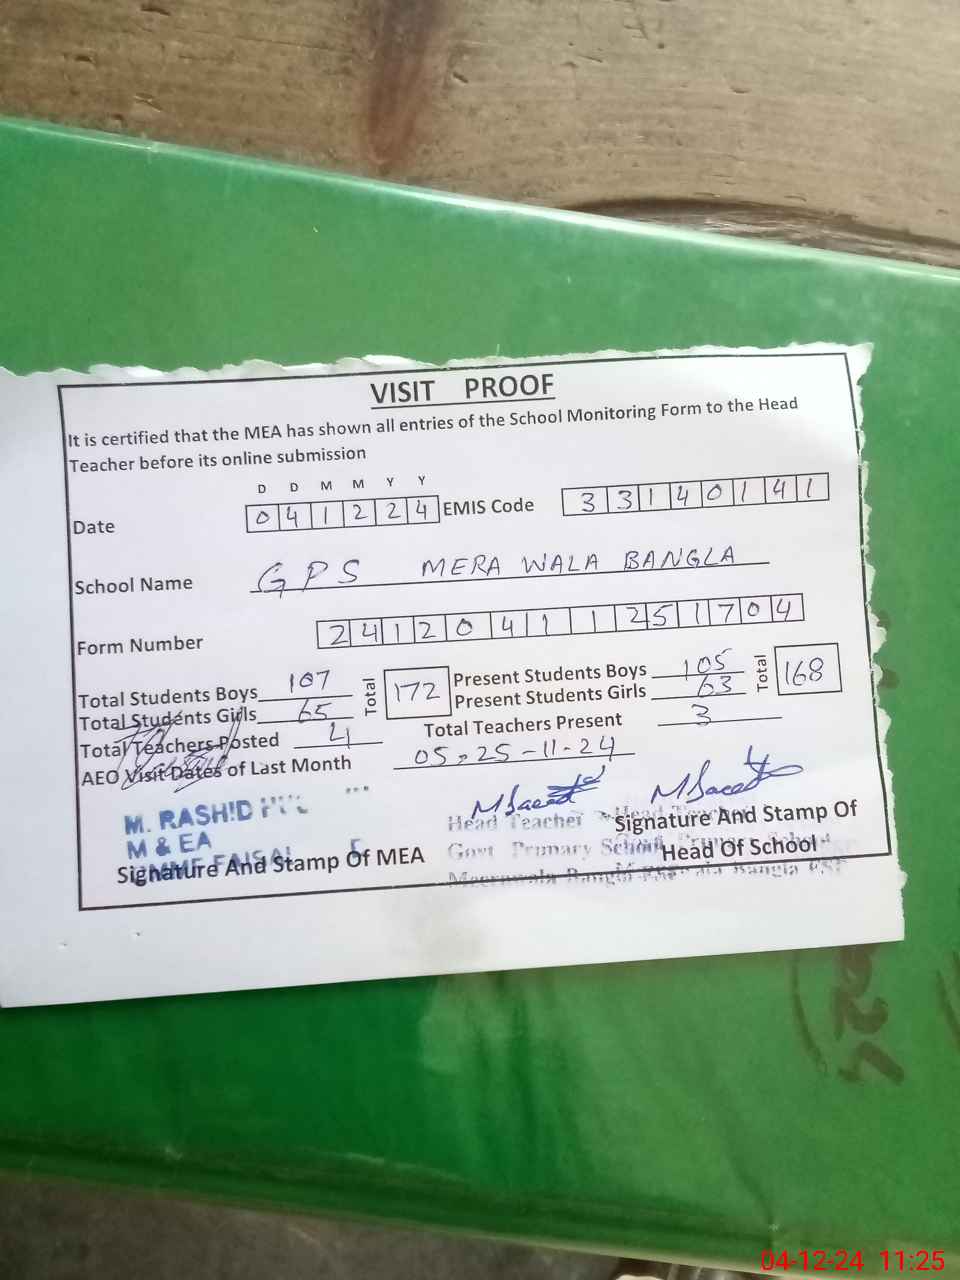 VISIT PROOF
It is certified that the MEA has shown all entries of the School Monitoring Form to the Head
Teacher before its online submission
D D M M Y Y
Date 041224 EMIS Code 33140141
School Name GPS MERA WALA BANGLA
Form Number 24120411251704
Total Students Boys 107 Total 172 Present Students Boys 105 Total 168
Total Students Girls 65 Present Students Girls 63
Total Teachers Posted 4 Total Teachers Present 3
AEO Visit Dates of Last Month 05,25-11-24
M. RASHID
M & EA
FAISAL
Signature And Stamp Of MEA
MSaeed
MSaeed
Head Teacher
Head Teacher
Govt Primary School
Primary School
Bangla
Bangla
Signature And Stamp Of
Head Of School
04-12-24 11:25